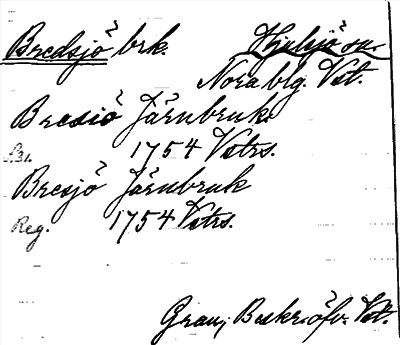 Bredsjö brk. Hjulsjö sn.
Nora blg. Vst.
Bresiö Järnbruk.
S. 31. 1754 Vstrs.
Bresjö Järnbruk
Reg. 1754 Vstrs.
Grau, Beskr. öfv. Vst.